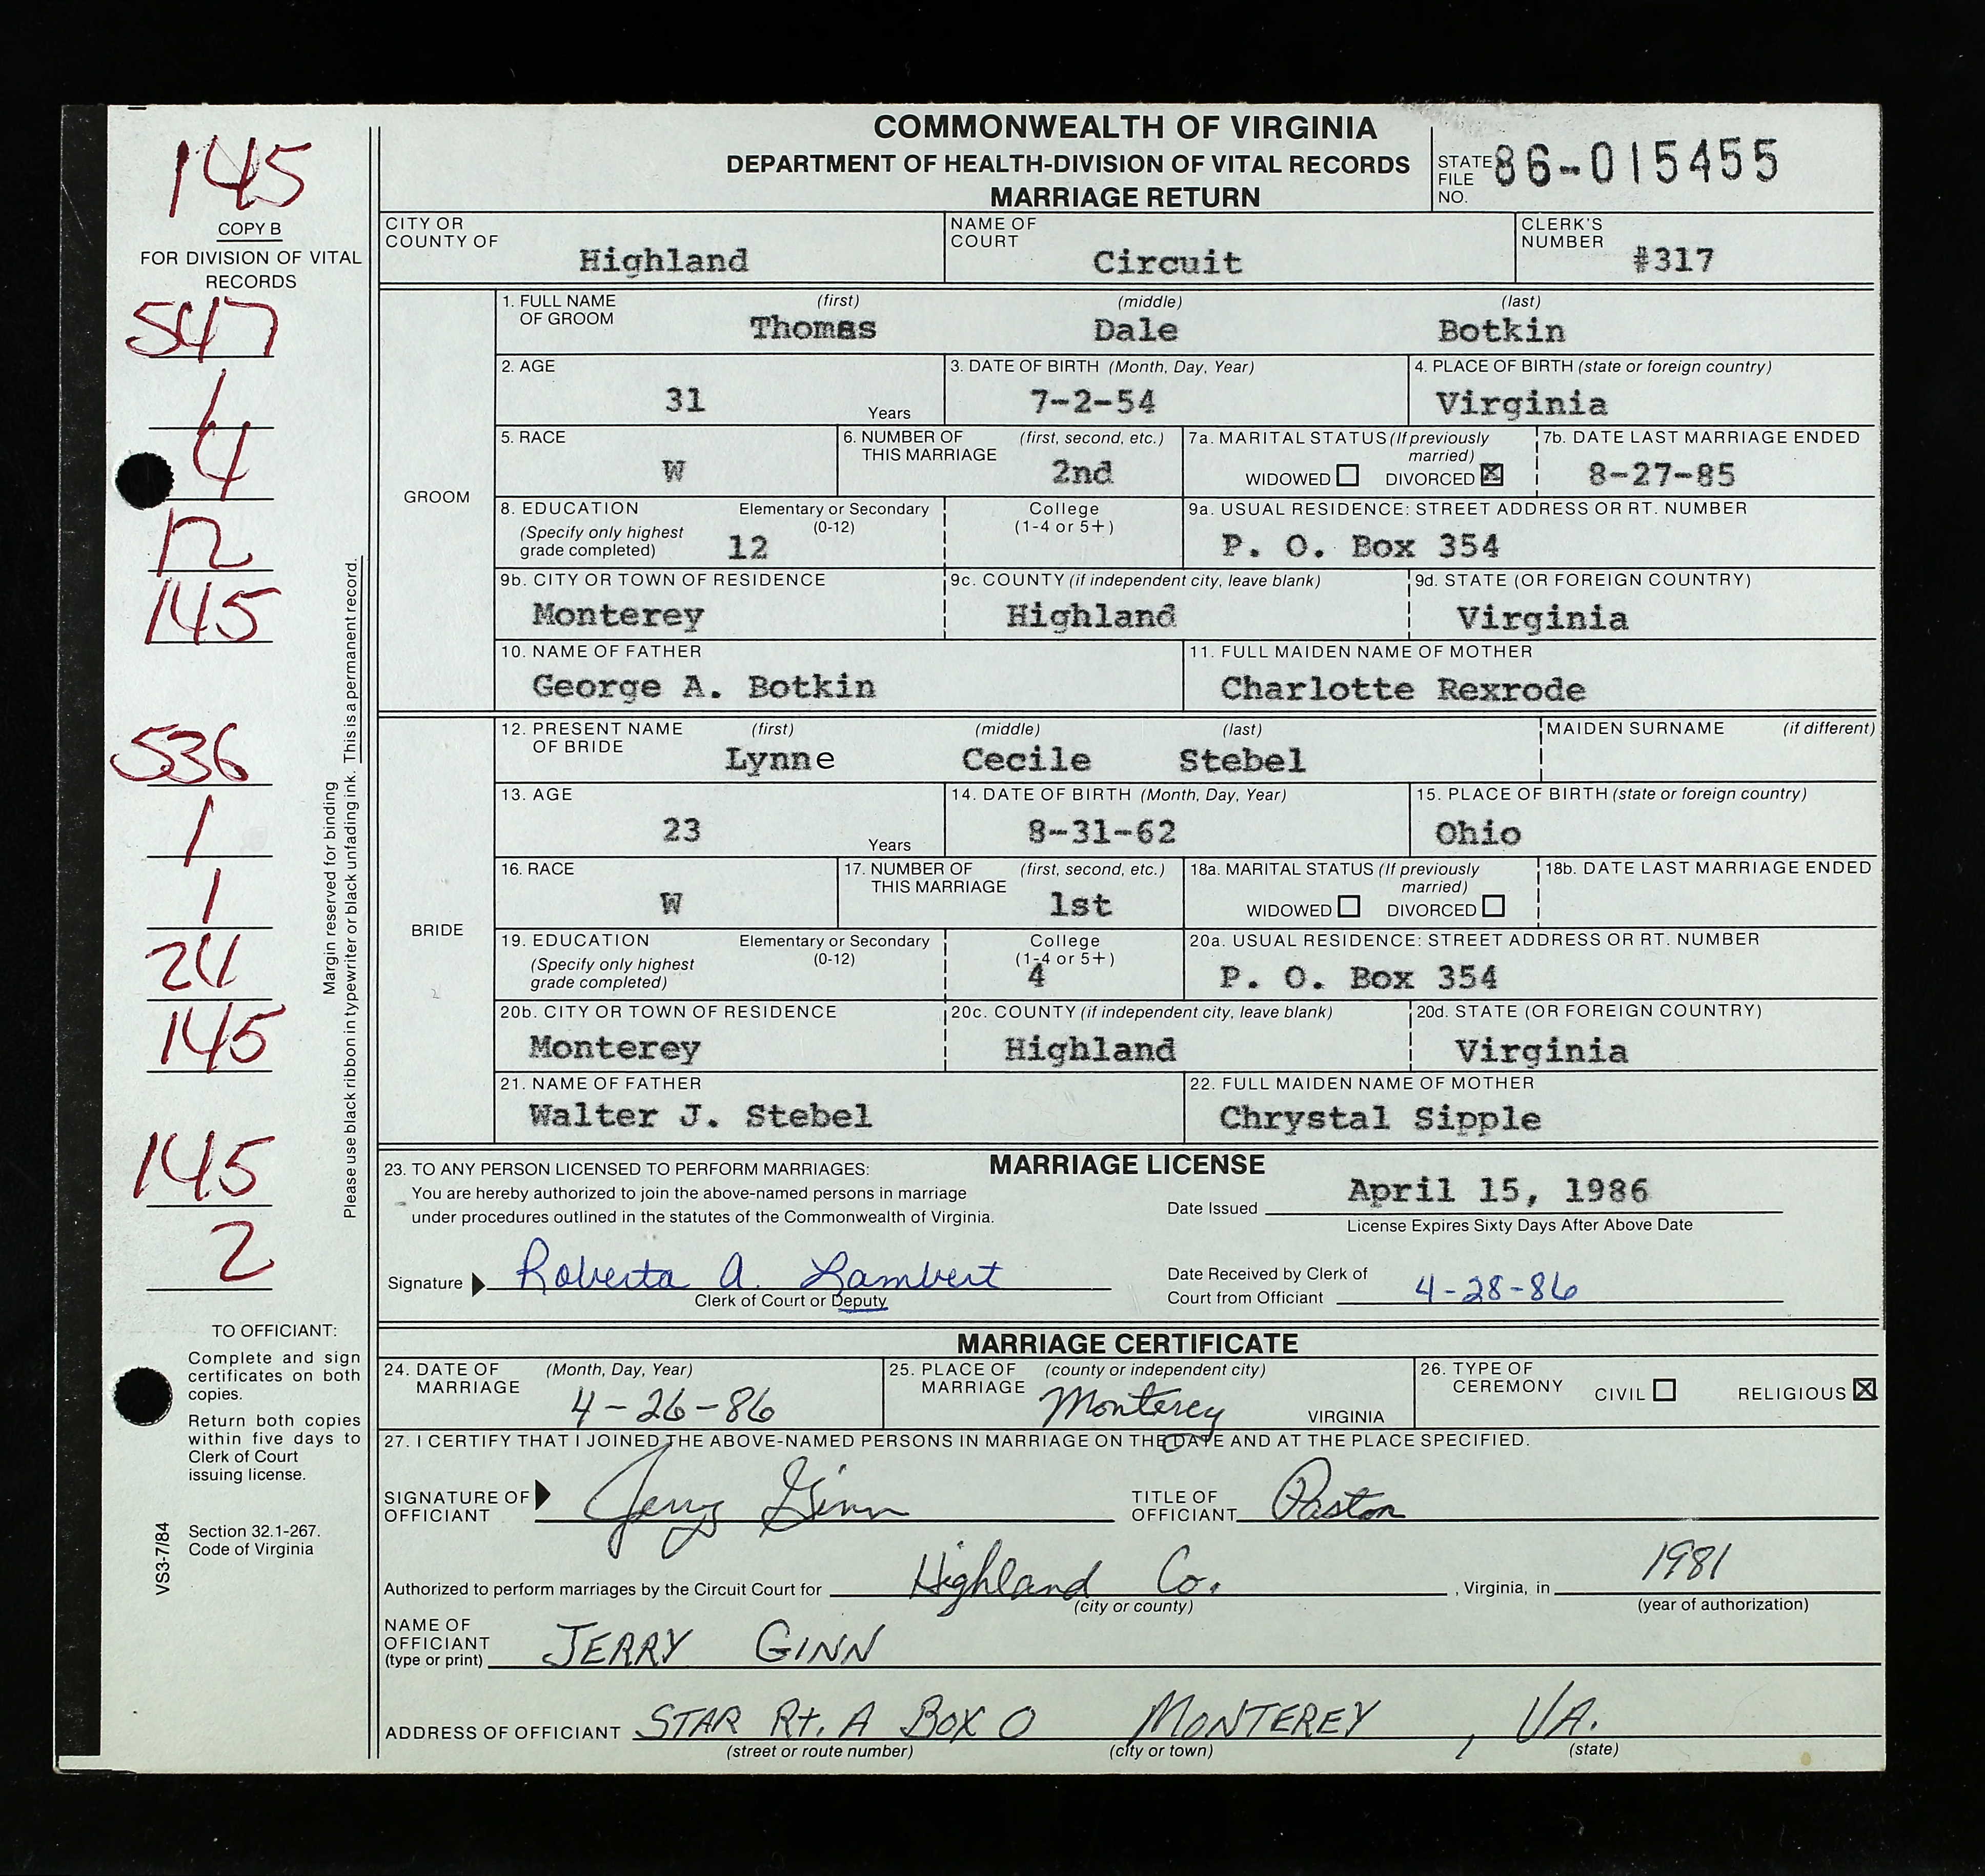 COMMONWEALTH OF VIRGINIA
DEPARTMENT OF HEALTH-DIVISION OF VITAL RECORDS
MARRIAGE RETURN
STATE FILE NO. 86-015455
145
COPY B
FOR DIVISION OF VITAL
RECORDS
547
1
4
12
145
536
1
1
24
145
145
2
Margin reserved for binding
Please use black ribbon in typewriter or black unfading ink. This is a permanent record.
TO OFFICIANT:
Complete and sign
certificates on both
copies.
Return both copies
within five days to
Clerk of Court
issuing license.
Section 32.1-267.
Code of Virginia
VS3-7/84
CITY OR COUNTY OF Highland
NAME OF COURT Circuit
CLERK'S NUMBER #317
GROOM
1. FULL NAME OF GROOM (first) (middle) (last)
Thomas Dale Botkin
2. AGE 31 Years
3. DATE OF BIRTH (Month, Day, Year) 7-2-54
4. PLACE OF BIRTH (state or foreign country) Virginia
5. RACE W
6. NUMBER OF THIS MARRIAGE (first, second, etc.) 2nd
7a. MARITAL STATUS (If previously married) WIDOWED ☐ DIVORCED ☒
7b. DATE LAST MARRIAGE ENDED 8-27-85
8. EDUCATION (Specify only highest grade completed) Elementary or Secondary (0-12) 12
College (1-4 or 5+)
9a. USUAL RESIDENCE: STREET ADDRESS OR RT. NUMBER P. O. Box 354
9b. CITY OR TOWN OF RESIDENCE Monterey
9c. COUNTY (if independent city, leave blank) Highland
9d. STATE (OR FOREIGN COUNTRY) Virginia
10. NAME OF FATHER George A. Botkin
11. FULL MAIDEN NAME OF MOTHER Charlotte Rexrode
BRIDE
12. PRESENT NAME OF BRIDE (first) (middle) (last)
Lynne Cecile Stebel
MAIDEN SURNAME (if different)
13. AGE 23 Years
14. DATE OF BIRTH (Month, Day, Year) 8-31-62
15. PLACE OF BIRTH (state or foreign country) Ohio
16. RACE W
17. NUMBER OF THIS MARRIAGE (first, second, etc.) 1st
18a. MARITAL STATUS (If previously married) WIDOWED ☐ DIVORCED ☐
18b. DATE LAST MARRIAGE ENDED
19. EDUCATION (Specify only highest grade completed) Elementary or Secondary (0-12)
College (1-4 or 5+) 4
20a. USUAL RESIDENCE: STREET ADDRESS OR RT. NUMBER P. O. Box 354
20b. CITY OR TOWN OF RESIDENCE Monterey
20c. COUNTY (if independent city, leave blank) Highland
20d. STATE (OR FOREIGN COUNTRY) Virginia
21. NAME OF FATHER Walter J. Stebel
22. FULL MAIDEN NAME OF MOTHER Chrystal Sipple
MARRIAGE LICENSE
23. TO ANY PERSON LICENSED TO PERFORM MARRIAGES:
You are hereby authorized to join the above-named persons in marriage
under procedures outlined in the statutes of the Commonwealth of Virginia.
Date Issued April 15, 1986
License Expires Sixty Days After Above Date
Signature Roberta A. Lambert
Clerk of Court or Deputy
Date Received by Clerk of
Court from Officiant 4-28-86
MARRIAGE CERTIFICATE
24. DATE OF MARRIAGE (Month, Day, Year) 4-26-86
25. PLACE OF MARRIAGE (county or independent city) Monterey VIRGINIA
26. TYPE OF CEREMONY CIVIL ☐ RELIGIOUS ☒
27. I CERTIFY THAT I JOINED THE ABOVE-NAMED PERSONS IN MARRIAGE ON THE DATE AND AT THE PLACE SPECIFIED.
SIGNATURE OF OFFICIANT Jerry Ginn
TITLE OF OFFICIANT Pastor
Authorized to perform marriages by the Circuit Court for Highland Co. , Virginia, in 1981
(city or county) (year of authorization)
NAME OF OFFICIANT (type or print) JERRY GINN
ADDRESS OF OFFICIANT STAR Rt. A BOX O MONTEREY , VA.
(street or route number) (city or town) (state)